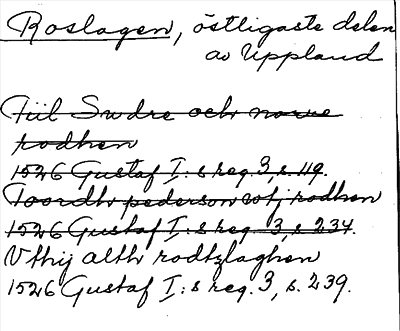 Roslagen, östligaste delen
av Uppland
Tiil Swdre och norre
rodhen
1526 Gustaf I:s reg. 3, s. 119.
Toordh pederson wtj rodhen
1526 Gustaf I:s reg 3, s 234.
Vthij alth rodtzlaghen
1526 Gustaf I:s reg. 3, s. 239.